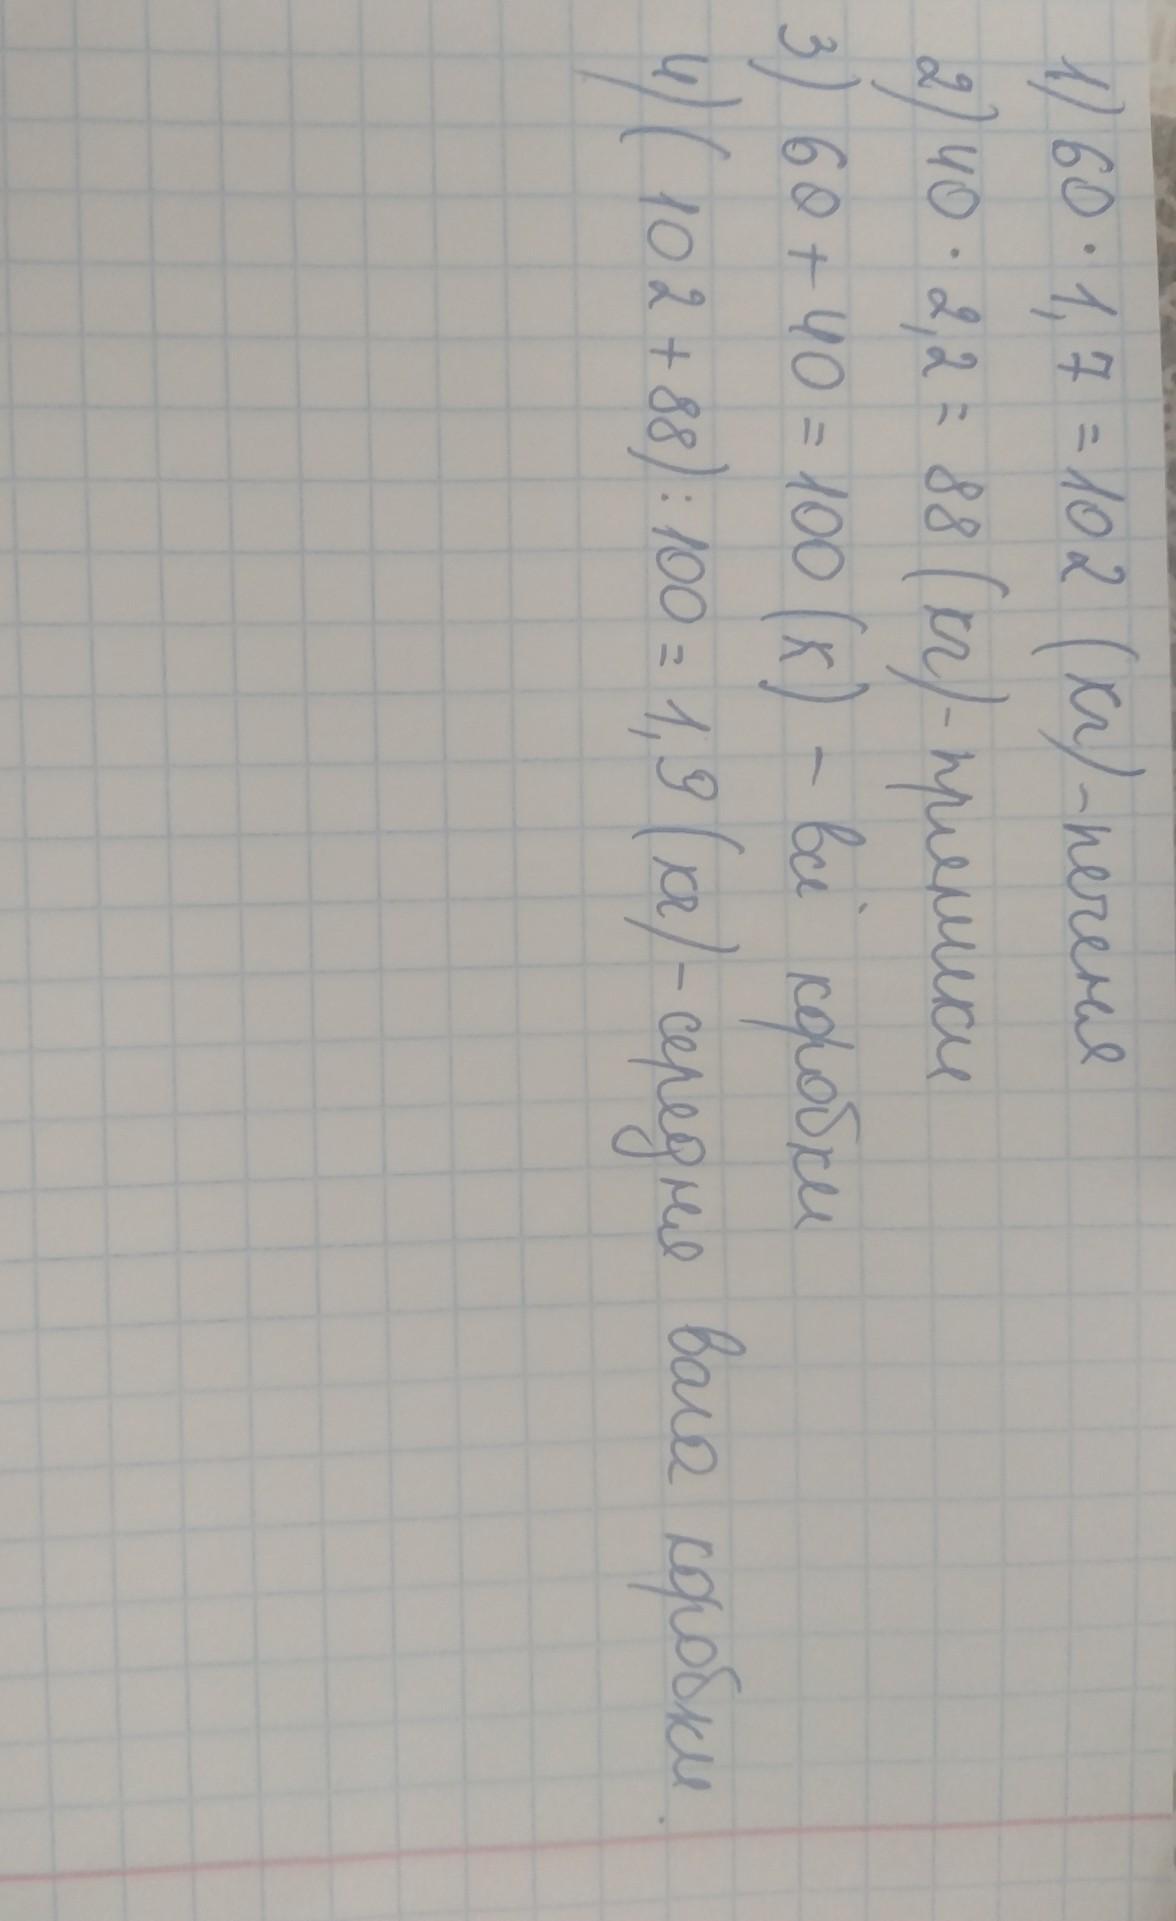 1) 60 · 1,7 = 102 (кг) - печення
2) 40 · 2,2 = 88 (кг) - пряники
3) 60 + 40 = 100 (к) - всі коробки
4) (102 + 88) : 100 = 1,9 (кг) - середня вага коробки.